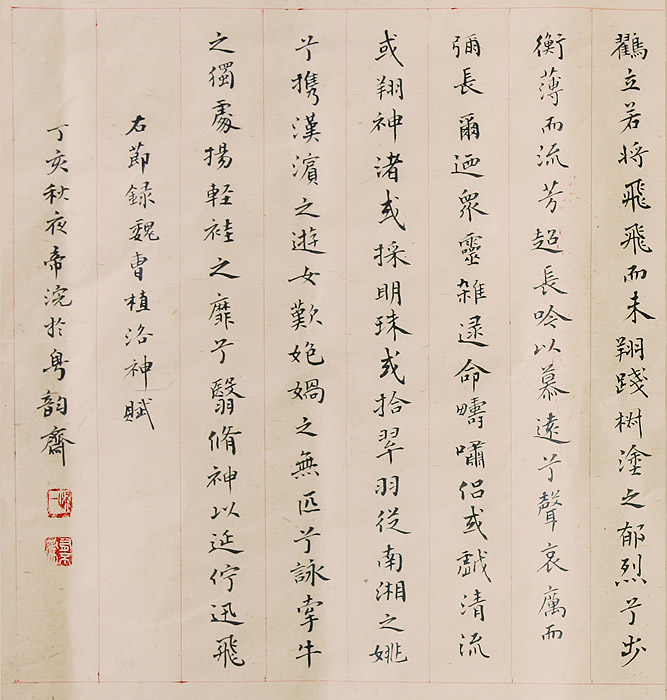 鸖立若将飛飛而未翔踐树塗之郁烈兮步
衡薄而流芳超長吟以慕遠兮聲哀厲而
彌長爾迺衆靈雜遝命疇嘯侶或戲清流
或翔神渚或採明珠或拾翠羽從南湘之姚
兮携漢濱之遊女歎媧之無匹兮詠牽牛
之獨處揚軽袿之靡兮翳脩神以延佇迅飛
右節録魏曹植洛神賦
丁亥秋夜帝浣於粤韵齋